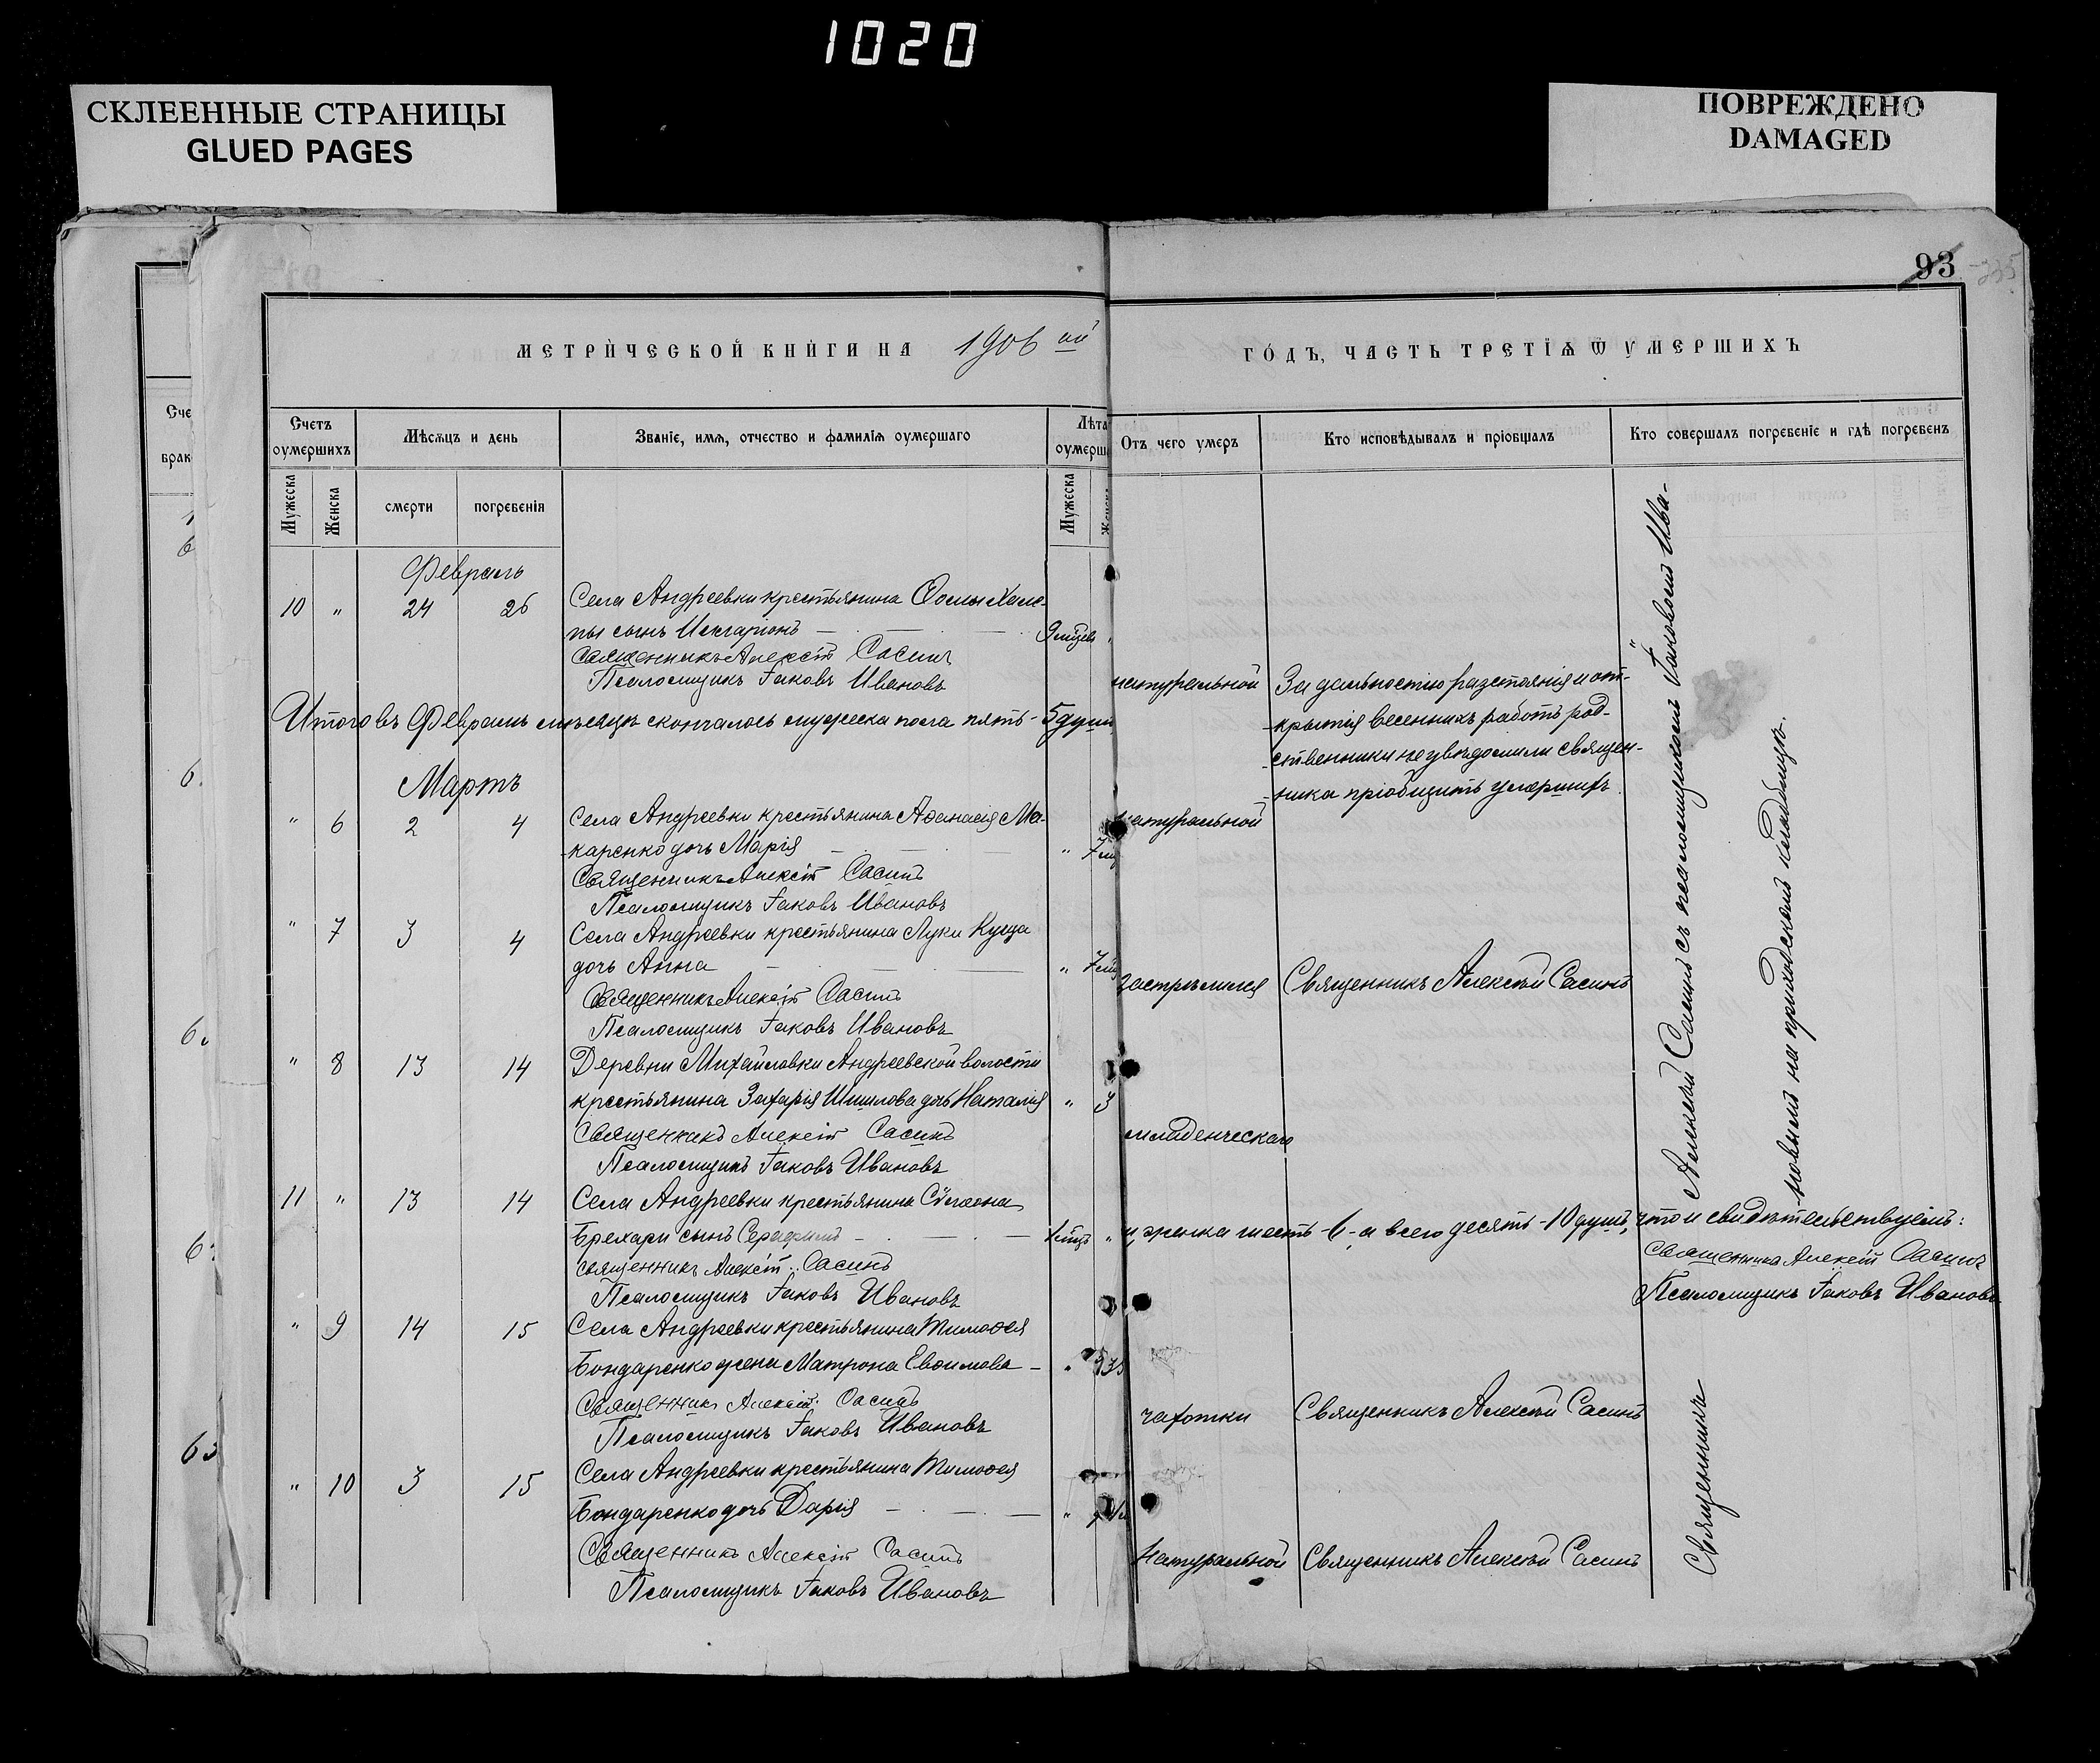 1020
СКЛЕЕННЫЕ СТРАНИЦЫ
GLUED PAGES
ПОВРЕЖДЕНО
DAMAGED
93
МЕТРИЧЕСКОЙ КНИГИ НА 1906 ый
Счетъ оумершихъ
Мѣсяцъ и день
Званіе, имя, отчество и фамилія оумершаго
Лѣта
оумерш
Мужеска
Женска
смерти
погребенія
Мужеска
Февраль
10 " 24 26 Села Андреевки крестьянина Ѳомы
сынъ Иларіонъ
Священникъ Алексій Сасинъ
Псаломщикъ Іаковъ Ивановъ
Итого въ Февралѣ мѣсяцѣ скончалось мужеска пола пять - 5 душъ
Мартъ
" 6 2 4 Села Андреевки крестьянина Аѳанасія Ма-
каренко дочь Марія
Священникъ Алексій Сасинъ
Псаломщикъ Іаковъ Ивановъ
" 7 3 4 Села Андреевки крестьянина Луки
дочь Анна
Священникъ Алексій Сасинъ
Псаломщикъ Іаковъ Ивановъ
" 8 13 14 Деревни Михайловки Андреевской волости
крестьянина Захарія Шишлова дочь Наталія " 3
Священникъ Алексій Сасинъ
Псаломщикъ Іаковъ Ивановъ
11 " 13 14 Села Андреевки крестьянина Сѵмеона
Брехари сынъ Серафимъ
Священникъ Алексій Сасинъ
Псаломщикъ Іаковъ Ивановъ
" 9 14 15 Села Андреевки крестьянина Тимоѳея
Бондаренко жена Матрона Евѳимова
Священникъ Алексій Сасинъ
Псаломщикъ Іаковъ Ивановъ
" 10 3 15 Села Андреевки крестьянина Тимоѳея
Бондаренко дочь Дарія
Священникъ Алексій Сасинъ
Псаломщикъ Іаковъ Ивановъ
ГОДЪ, ЧАСТЬ ТРЕТІЯ Ѿ УМЕРШИХЪ
Отъ чего умеръ
Кто исповѣдывалъ и пріобщалъ
Кто совершалъ погребеніе и гдѣ погребенъ
натуральной За дальностію разстоянія и от-
крытія весеннихъ работъ род-
ственники не увѣдомили священ-
ника пріобщить умершихъ.
натуральной
застрѣлился Священникъ Алексѣй Сасинъ
младенческаго
и женска шесть - 6, а всего десять - 10 душъ, что и свидѣтельствуемъ:
Священникъ Алексій Сасинъ
Псаломщикъ Іаковъ Ивановъ
чахотки Священникъ Алексѣй Сасинъ
Натуральной Священникъ Алексѣй Сасинъ
Священникъ Алексѣй Сасинъ съ псаломщикомъ Іаковомъ Ива-
новымъ на приходскомъ кладбищѣ.